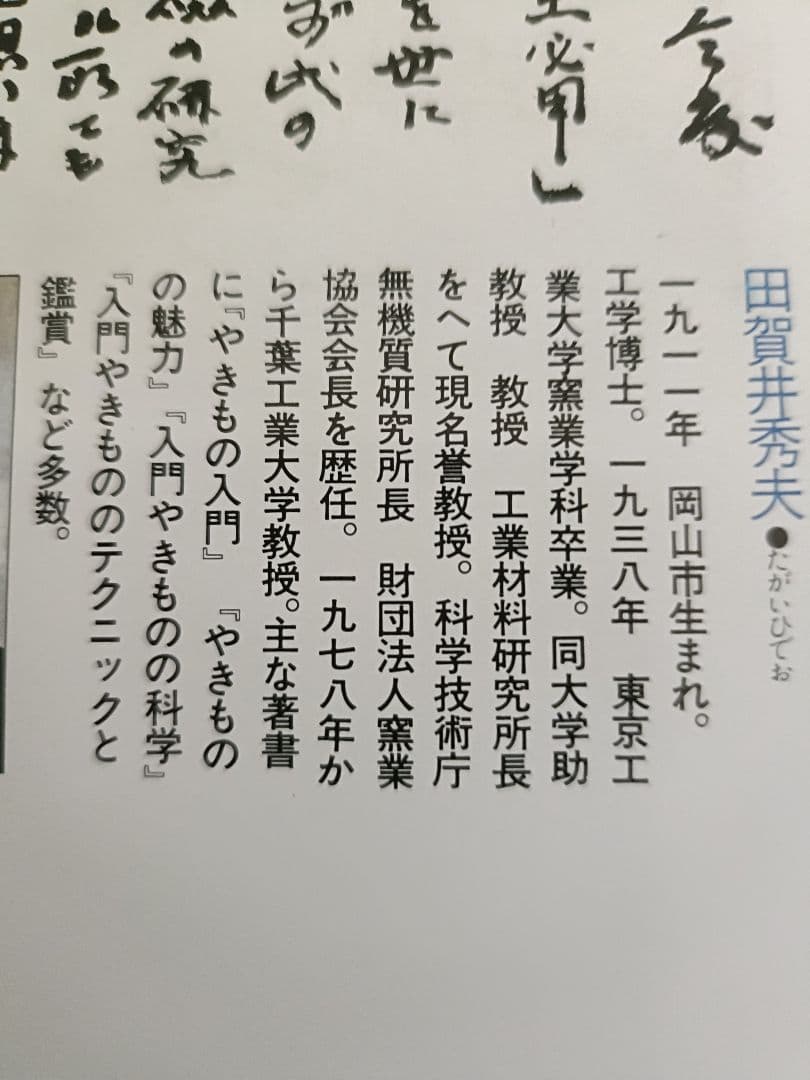 今度
工必用」
を世に
ずが代の
の研究
所でも
田賀井秀夫●たがいひでお
一九一一年　岡山市生まれ。
工学博士。一九三八年　東京工
業大学窯業学科卒業。同大学助
教授　教授　工業材料研究所長
をへて現名誉教授。科学技術庁
無機質研究所長　財団法人窯業
協会会長を歴任。一九七八年か
ら千葉工業大学教授。主な著書
に『やきもの入門』『やきもの
の魅力』『入門やきものの科学』
『入門やきもののテクニックと
鑑賞』など多数。